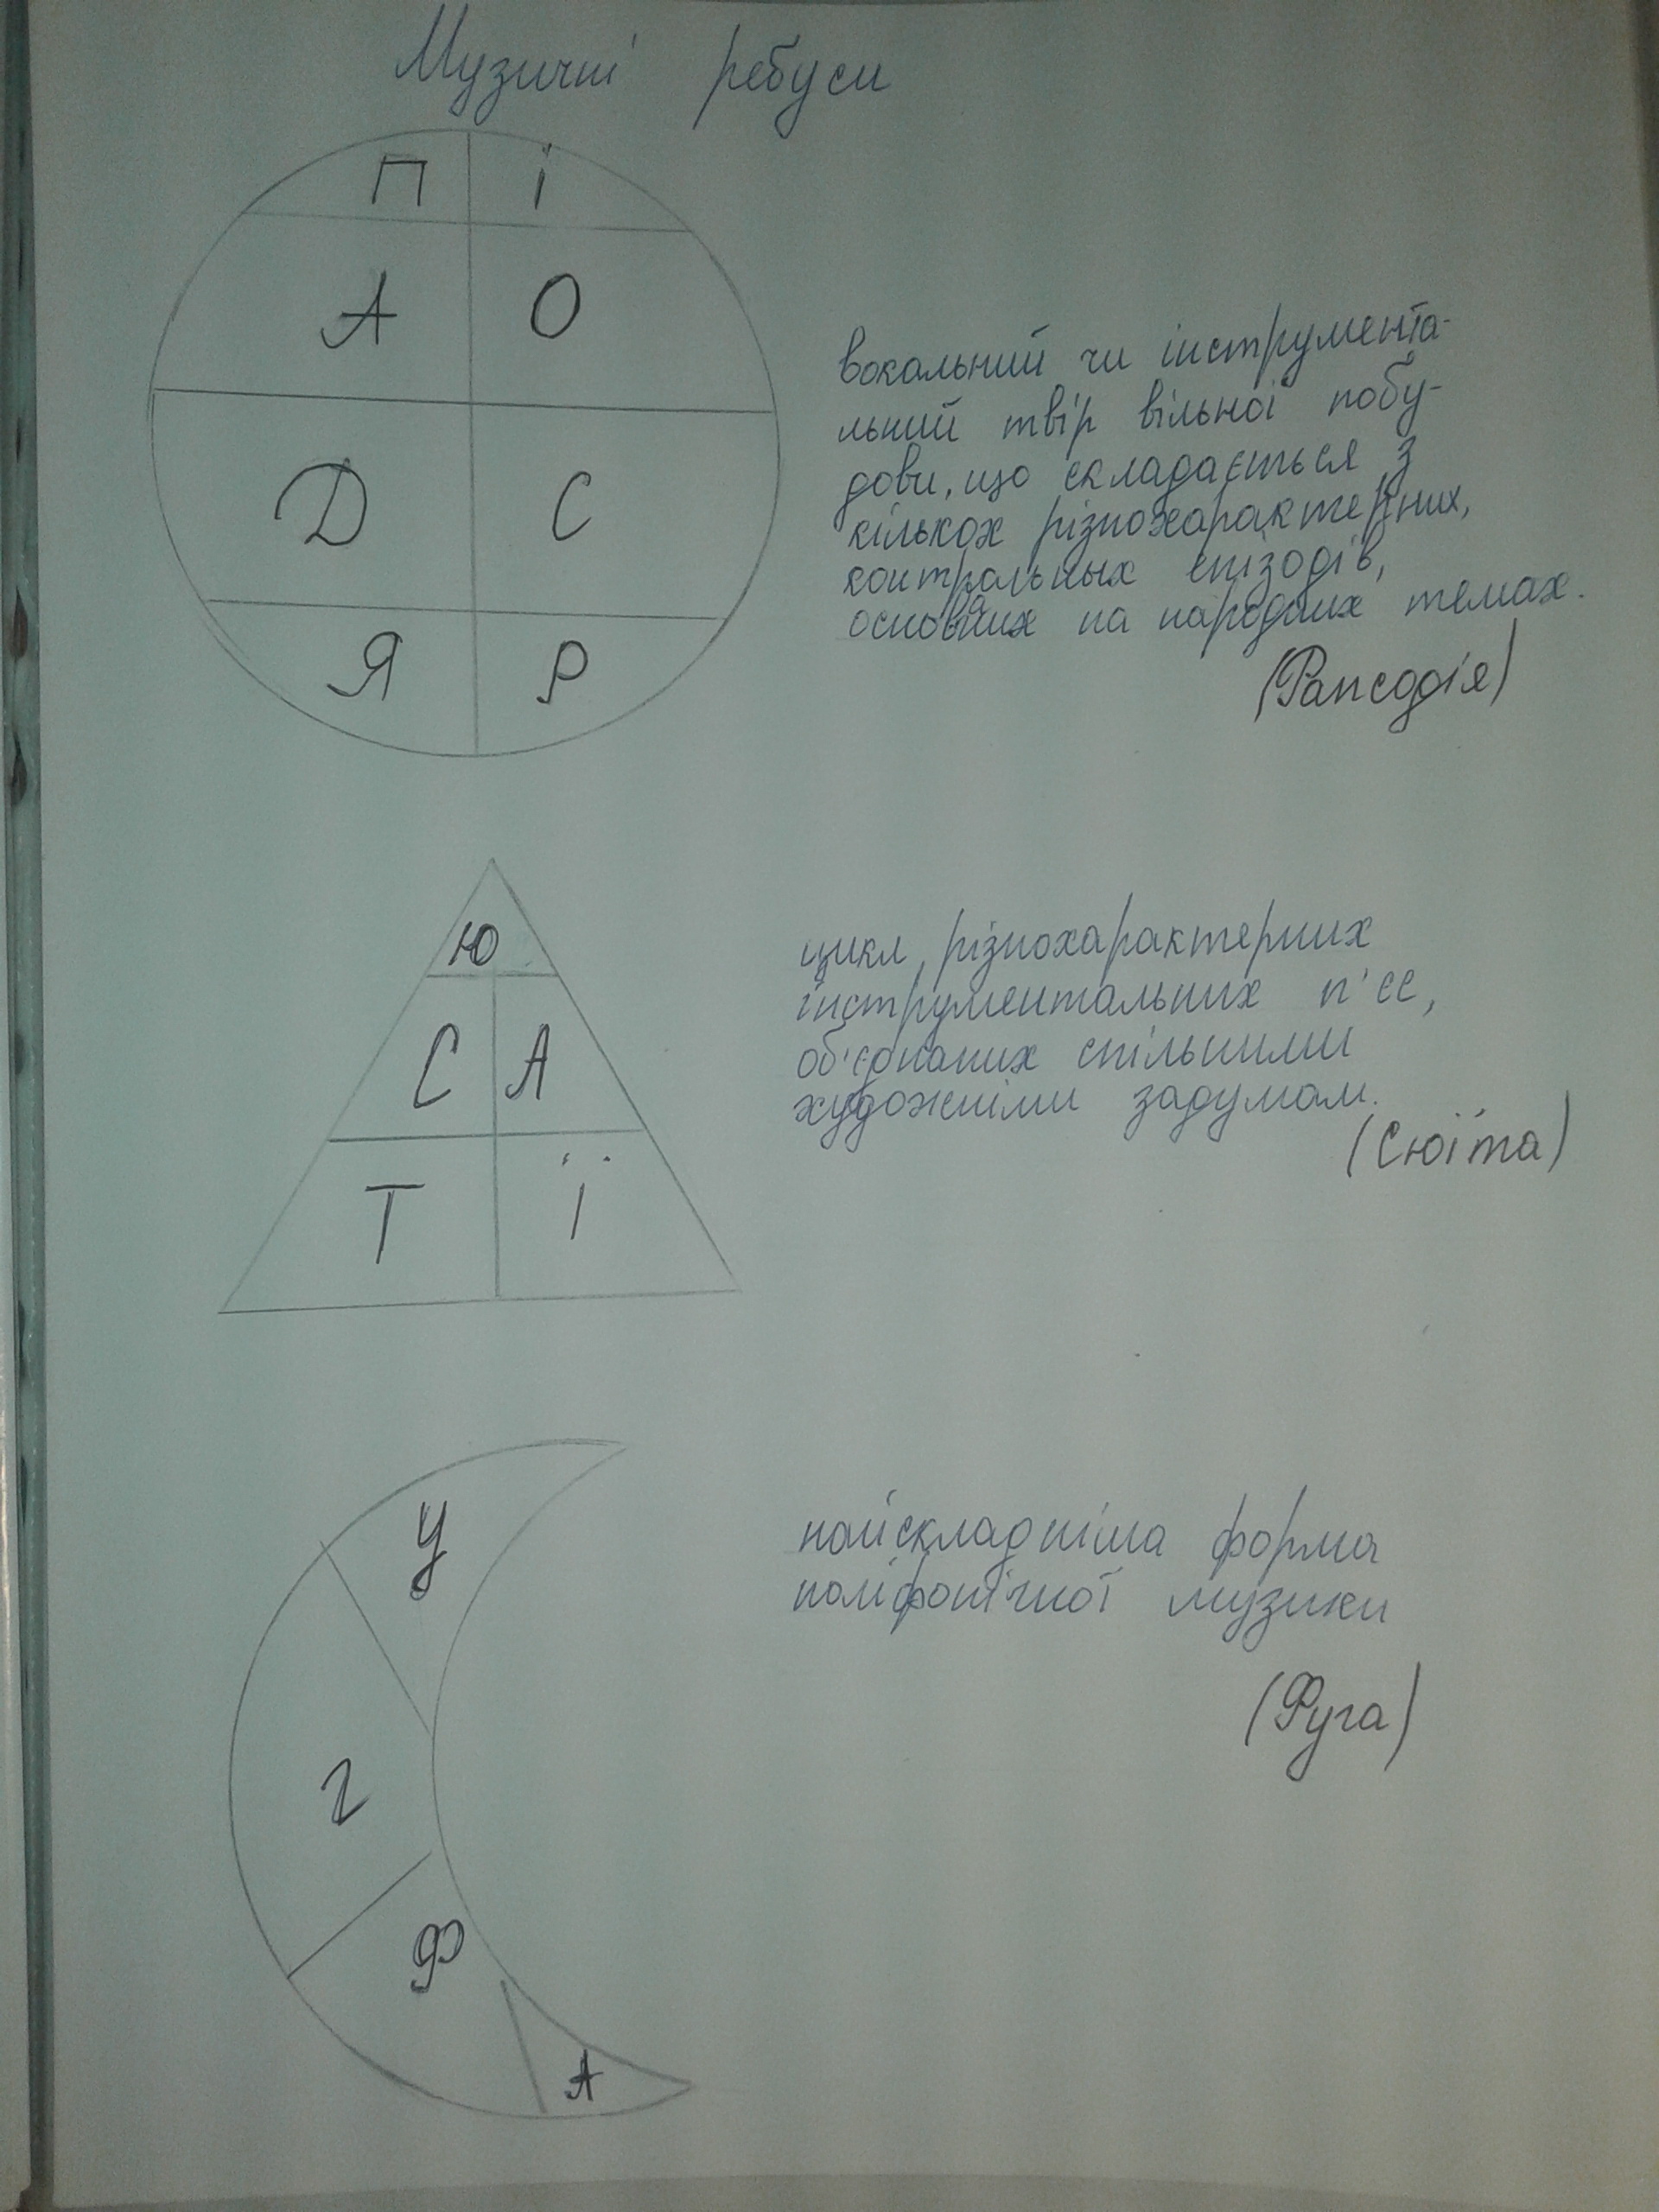 Музичні ребуси
П І
А О
Д С
Я Р
вокальний чи інструмента-
льний твір вільної побу-
дови, що складається з
кількох різнохарактерних,
контральных епізодів,
основаних на народних темах.
(Рапсодія)
Ю
С А
Т Ї
цикл різнохарактерних
інструментальних п'єс,
об'єднаних спільними
художніми задумам.
(Сюїта)
У
Г
Ф
А
найскладніша форма
поліфонічної музики
(Фуга)